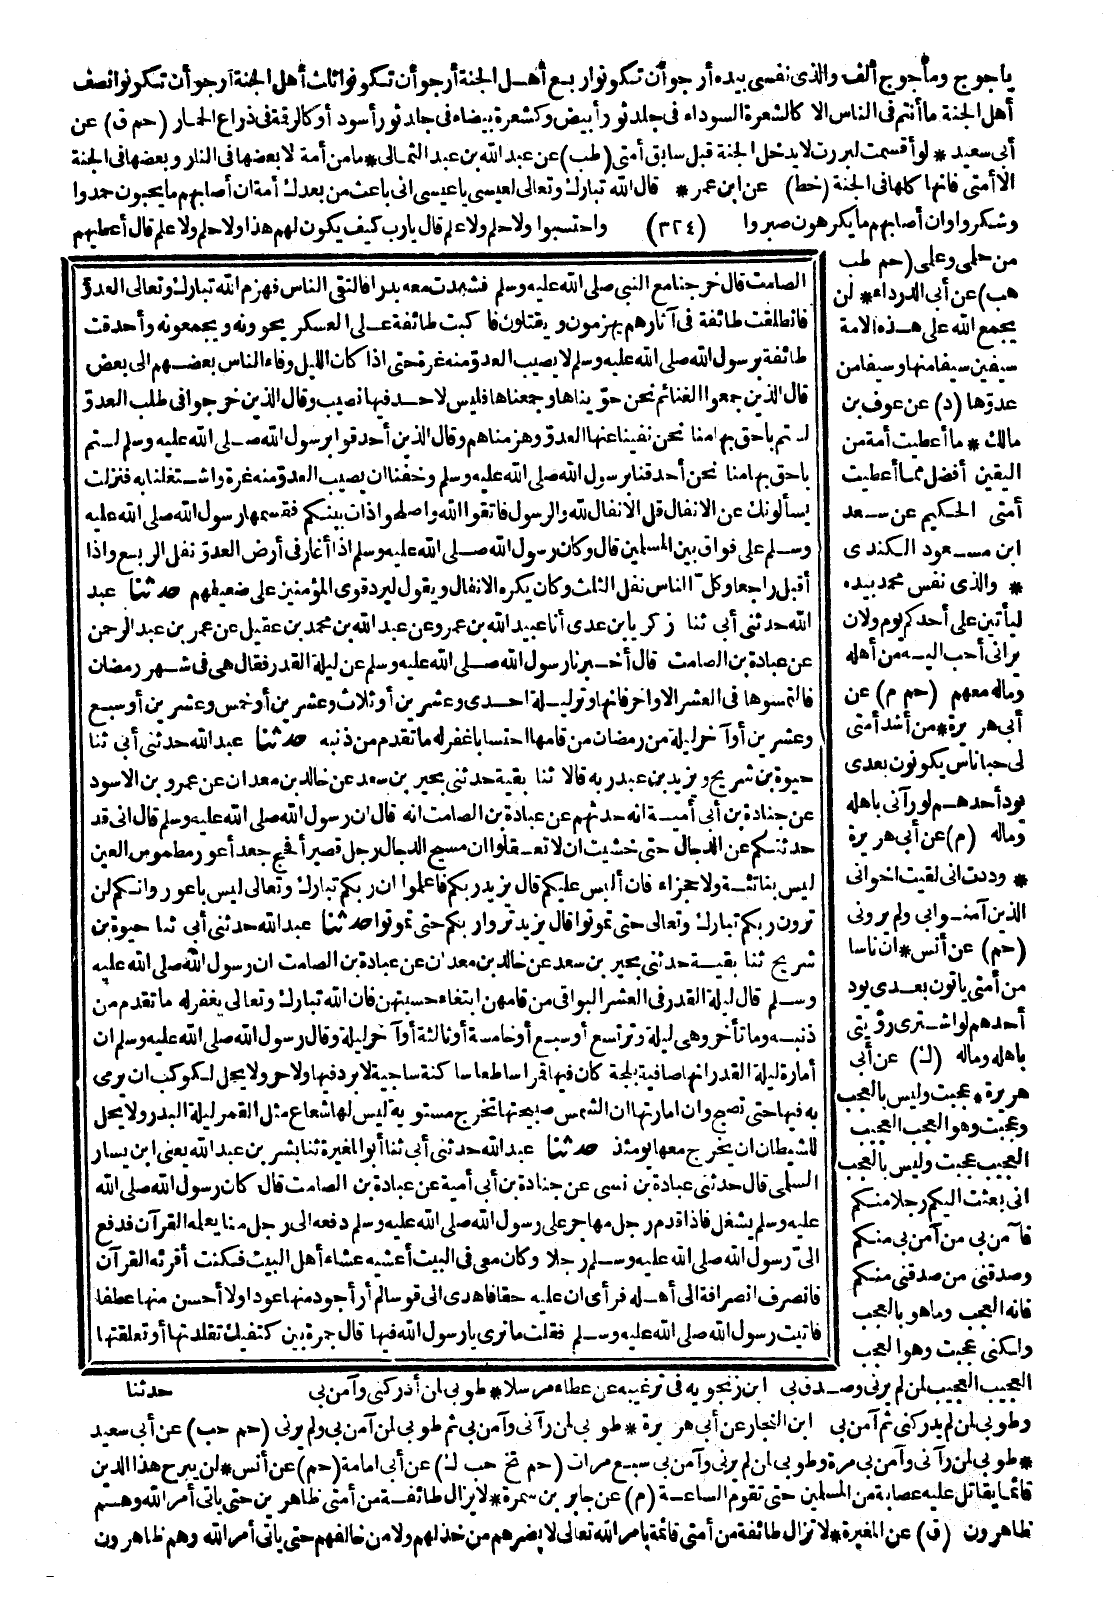 ياجوج ومأجوج ألف والذى نفسى بيده أرجو أن تكونوا ربع أهل الجنة أرجو أن تكونوا ثلث أهل الجنة أرجو أن تكونوا نصف
أهل الجنة ما أنتم فى الناس الا كالشعرة السوداء فى جلد ثور أبيض وكشعرة بيضاء فى جلد ثور أسود أو كالرقمة فى ذراع الحمار (حم ق) عن
أبى سعيد * لو أقسمت لبررت لا يدخل الجنة قبل سابق أمتى (طب) عن عبد الله بن عبد الثمالى * ما من أمة لا بعضها فى النار وبعضها فى الجنة
الا أمتى فانها كلها فى الجنة (خط) عن ابن عمر * قال الله تبارك وتعالى لعيسى يا عيسى انى باعث من بعدك أمة ان أصابهم ما يحبون حمدوا
وشكروا وان أصابهم ما يكرهون صبروا (٣٢٤) واحتسبوا ولا حلم ولا علم قال يارب كيف يكون لهم هذا ولا حلم ولا علم قال أعطيهم
من حلمى وعلمى (حم طب
هب) عن أبى الدرداء * لن
يجمع الله على هذه الامة
سيفين سيفا منها وسيفا من
عدوّها (د) عن عوف بن
مالك * ما أعطيت أمة من
اليقين أفضل مما أعطيت
أمتى الحكيم عن سعد
ابن مسعود الكندى
* والذى نفس محمد بيده
ليأتين على أحدكم يوم ولان
يرانى أحب اليه من أهله
وماله معهم (حم م) عن
أبى هريرة * من أشد أمتى
لى حبا ناس يكونون بعدى
يود أحدهم لو رآنى باهله
وماله (م) عن أبى هريرة
* وددت انى لقيت اخوانى
الذين آمنوا بى ولم يرونى
(حم) عن أنس * ان ناسا
من أمتى ياتون بعدى يود
أحدهم لو اشترى رؤيتى
باهله وماله (ك) عن أبى
هريرة * عجبت وليس بالعجب
وعجبت وهو العجب العجيب
العجيب عجبت وليس بالعجب
انى بعثت اليكم رجلا منكم
فآمن بى من آمن بى منكم
وصدقنى من صدقنى منكم
فانه العجب وما هو بالعجب
ولكنى عجبت وهو العجب
الصامت قال خرجنا مع النبى صلى الله عليه وسلم فشهدت معه بدرا فالتقى الناس فهزم الله تبارك وتعالى العدوّ
فانطلقت طائفة فى آثارهم يهزمون ويقتلون فاكبت طائفة على العسكر يحوونه ويجمعونه وأحدقت
طائفة برسول الله صلى الله عليه وسلم لا يصيب العدو منه غرة حتى اذا كان الليل وفاء الناس بعضهم الى بعض
قال الذين جمعوا الغنائم نحن حويناها وجمعناها فليس لاحد فيها نصيب وقال الذين خرجوا فى طلب العدوّ
لستم باحق بها منا نحن نفينا عنها العدو وهزمناهم وقال الذين أحدقوا برسول الله صلى الله عليه وسلم لستم
باحق بها منا نحن أحدقنا برسول الله صلى الله عليه وسلم وخفنا ان يصيب العدو منه غرة واشتغلنا به فنزلت
يسألونك عن الانفال قل الانفال لله والرسول فاتقوا الله واصلحوا ذات بينكم فقسمها رسول الله صلى الله عليه
وسلم على فواق بين المسلمين قال وكان رسول الله صلى الله عليه وسلم اذا أغار فى أرض العدوّ نفل الربع واذا
أقبل راجعا وكلّ الناس نفل الثلث وكان يكره الانفال ويقول ليرد قوى المؤمنين على ضعيفهم حدثنا عبد
الله حدثنى أبى ثنا زكريا بن عدى أنا عبيد الله بن عمرو عن عبد الله بن محمد بن عقيل عن عمر بن عبد الرحمن
عن عبادة بن الصامت قال أخبرنا رسول الله صلى الله عليه وسلم عن ليلة القدر فقال هى فى شهر رمضان
فالتمسوها فى العشر الاواخر فانها وتر ليلة احدى وعشرين أو ثلاث وعشرين أو خمس وعشرين أو سبع
وعشرين أو آخر ليلة من رمضان من قامها احتسابا غفر له ما تقدم من ذنبه حدثنا عبد الله حدثنى أبى ثنا
حيوة بن شريح ويزيد بن عبد ربه قالا ثنا بقية حدثنى بحير بن سعد عن خالد بن معدان عن عمرو بن الاسود
عن جنادة بن أبى أمية انه حدثهم عن عبادة بن الصامت انه قال ان رسول الله صلى الله عليه وسلم قال انى قد
حدثتكم عن الدجال حتى خشيت ان لا تعقلوا ان مسيح الدجال رجل قصير أفحج جعد أعور مطموس العين
ليس بناتئة ولا جحزاء فان ألبس عليكم قال يزيد ربكم فاعلموا ان ربكم تبارك وتعالى ليس باعور وانكم لن
ترون ربكم تبارك وتعالى حتى تموتوا قال يزيد تروا ربكم حتى تموتوا حدثنا عبد الله حدثنى أبى ثنا حيوة بن
شريح ثنا بقية حدثنى بحير بن سعد عن خالد بن معدان عن عبادة بن الصامت ان رسول الله صلى الله عليه
وسلم قال ليلة القدر فى العشر البواقى من قامهن ابتغاء حسبتهن فان الله تبارك وتعالى يغفر له ما تقدم من
ذنبه وما تأخر وهى ليلة وتر تسع أو سبع أو خامسة أو ثالثة أو آخر ليلة وقال رسول الله صلى الله عليه وسلم ان
أمارة ليلة القدر انها صافية بلجة كان فيها قمرا ساطعا ساكنة ساجية لا برد فيها ولا حر ولا يحل لكوكب ان يرمى
به فيها حتى تصبح وان امارتها ان الشمس صبيحتها تخرج مستوية ليس لها شعاع مثل القمر ليلة البدر ولا يحل
للشيطان ان يخرج معها يومئذ حدثنا عبد الله حدثنى أبى ثنا أبو المغيرة ثنا بشر بن عبد الله يعنى ابن يسار
السلمى قال حدثنى عبادة بن نسى عن جنادة بن أبى أمية عن عبادة بن الصامت قال كان رسول الله صلى الله
عليه وسلم يشغل فاذا قدم رجل مهاجر على رسول الله صلى الله عليه وسلم دفعه الى رجل منا يعلمه القرآن فدفع
الىّ رسول الله صلى الله عليه وسلم رجلا وكان معى فى البيت أعشيه عشاء أهل البيت فكنت أقرئه القرآن
فانصرف انصرافة الى أهله فرأى ان عليه حقا فاهدى الى قوسا لم أر أجود منها عودا ولا أحسن منها عطفا
فاتيت رسول الله صلى الله عليه وسلم فقلت ما ترى يا رسول الله فيها قال جمرة بين كتفيك تقلدتها أو تعلقتها
العجيب العجيب لمن لم يرنى وصدق بى ابن زنجويه فى ترغيبه عن عطاء مرسلا * طوبى لمن أدركنى وآمن بى حدثنا
وطوبى لمن لم يدركنى ثم آمن بى ابن النجار عن أبى هريرة * طوبى لمن رآنى وآمن بى ثم طوبى لمن آمن بى ولم يرنى (حم حب) عن أبى سعيد
* طوبى لمن رآنى وآمن بى مرة وطوبى لمن لم يرنى وآمن بى سبع مرات (حم تخ حب ك) عن أبى امامة (حم) عن أنس * لن يبرح هذا الدين
قائما يقاتل عليه عصابة من المسلمين حتى تقوم الساعة (م) عن جابر بن سمرة * لا يزال طائفة من أمتى ظاهرين حتى ياتى أمر الله وهم
ظاهرون (ق) عن المغيرة * لا تزال طائفة من أمتى قائمة بامر الله تعالى لا يضرهم من خذلهم ولا من خالفهم حتى ياتى أمر الله وهم ظاهرون